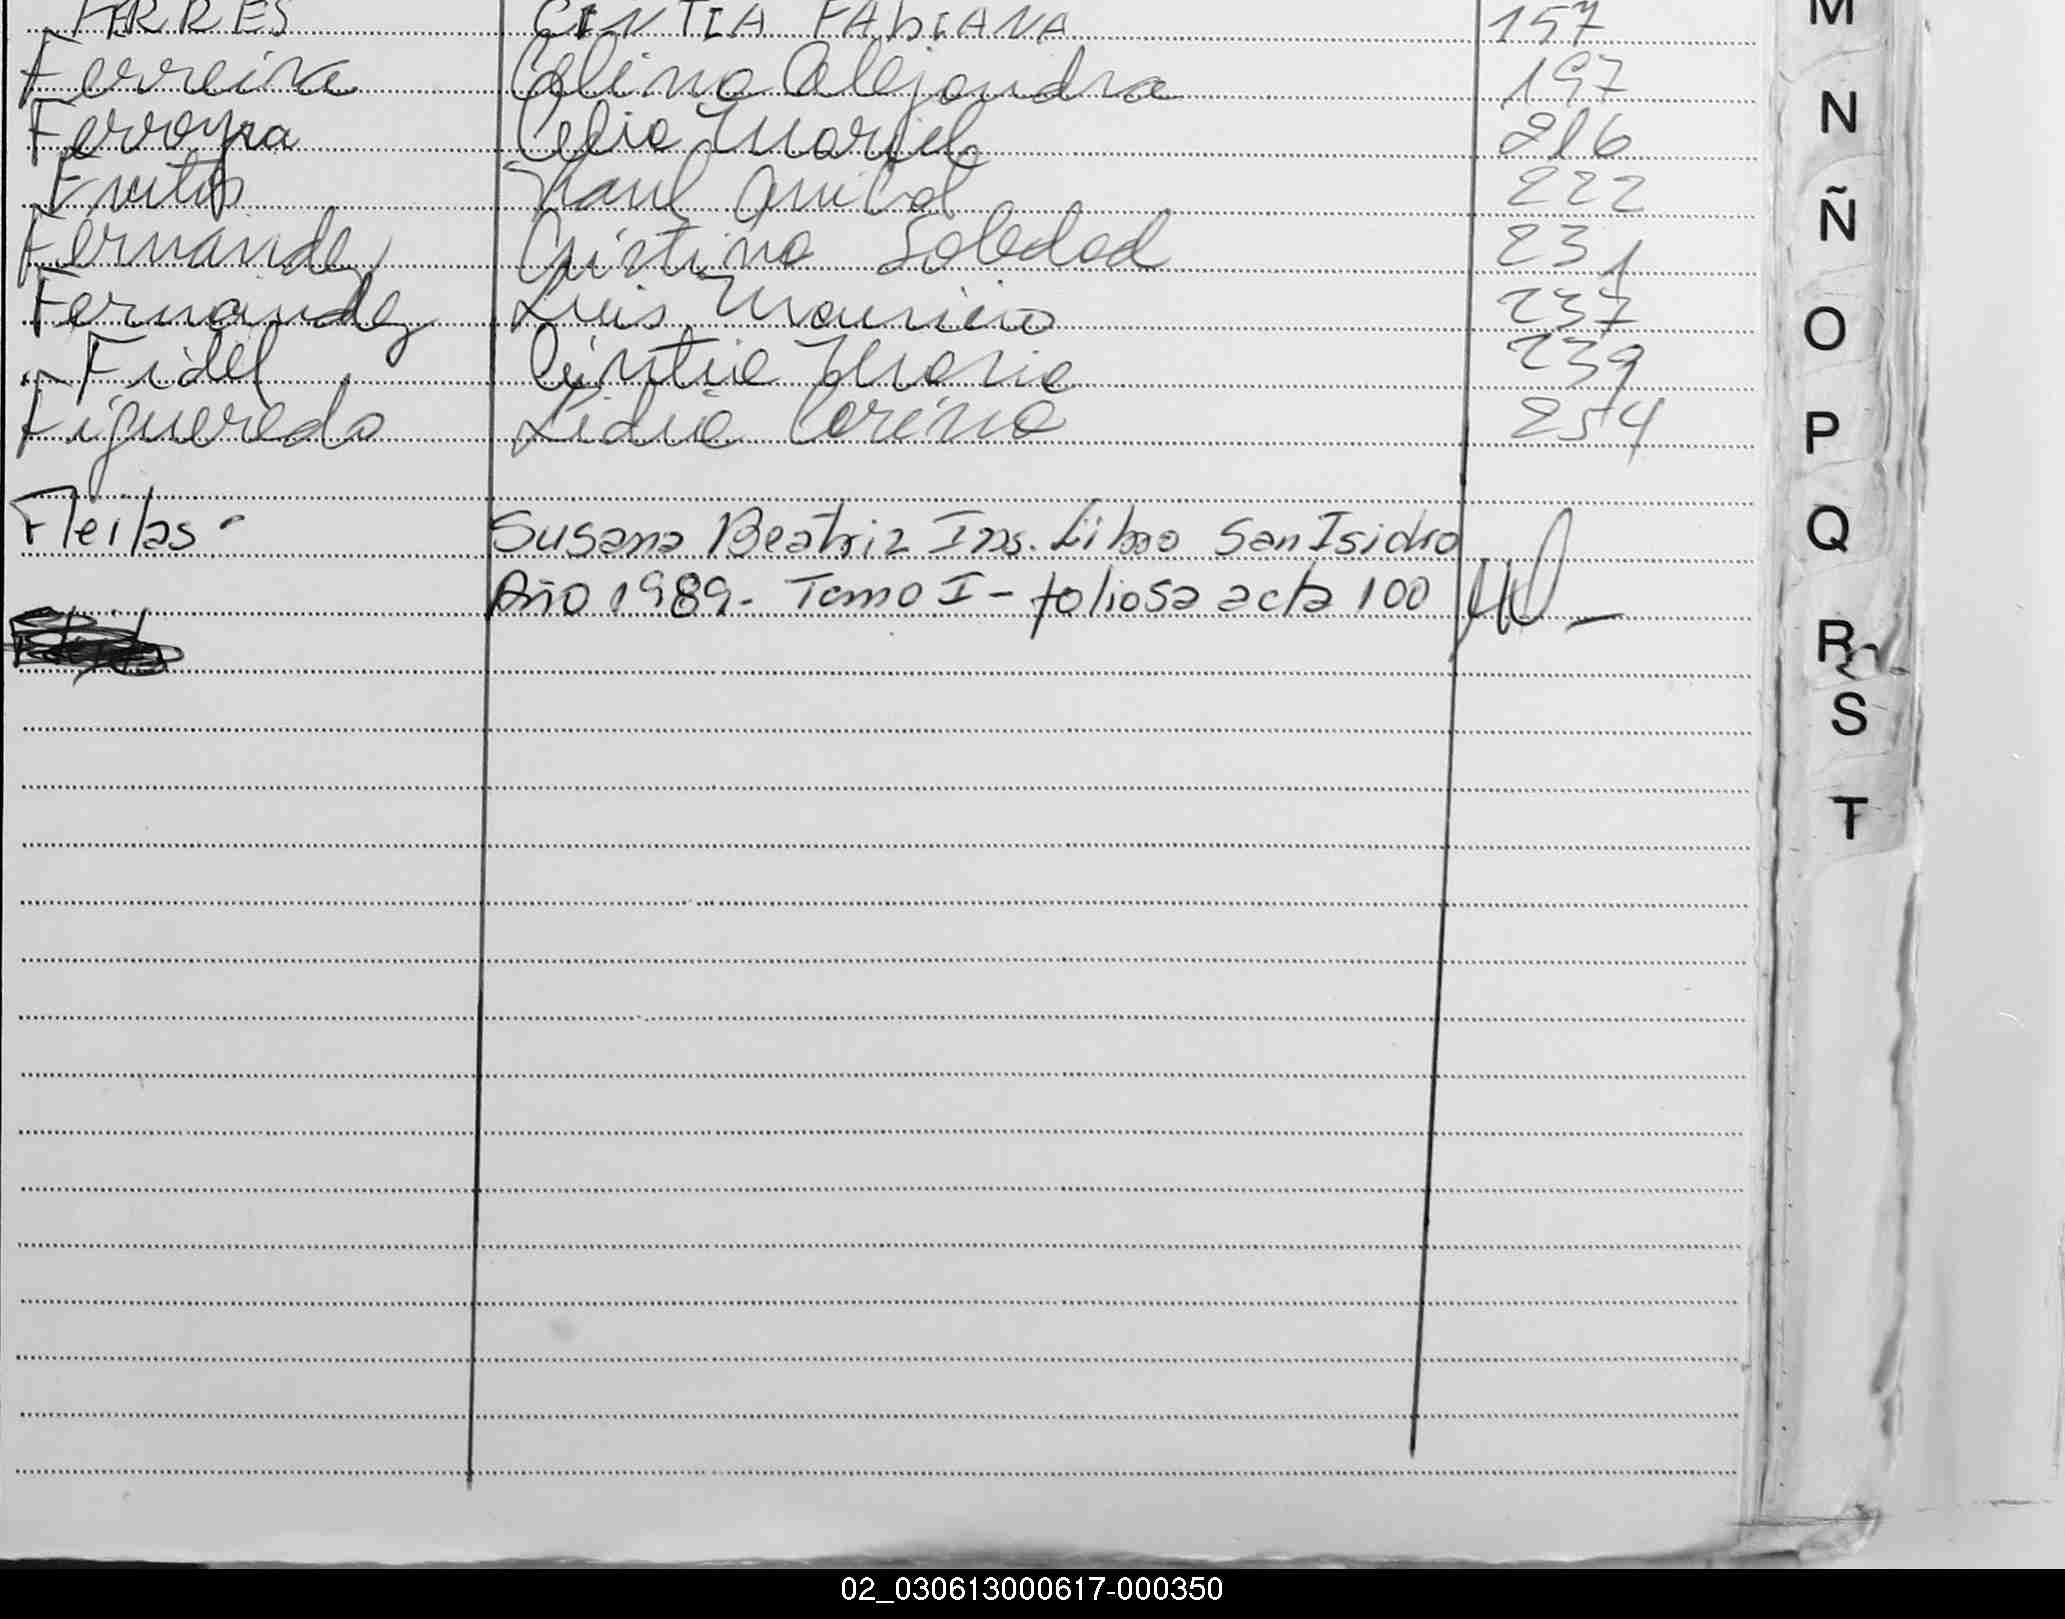 FARRES CINTIA FABIANA 157
Ferreira Celina Alejandra 197
Ferreyra Celia Mariel 216
Frutos Raul Anibal 222
Fernandez Cristina Soledad 231
Fernandez Luis Mauricio 237
Fidel Cintia Maria 239
Figueredo Lidia Corina 254
Fleitas Susana Beatriz Ins. Libro San Isidro
Año 1989- Tomo I - folio 5a acta 100
M
N
Ñ
O
P
Q
R
S
T
02_030613000617-000350